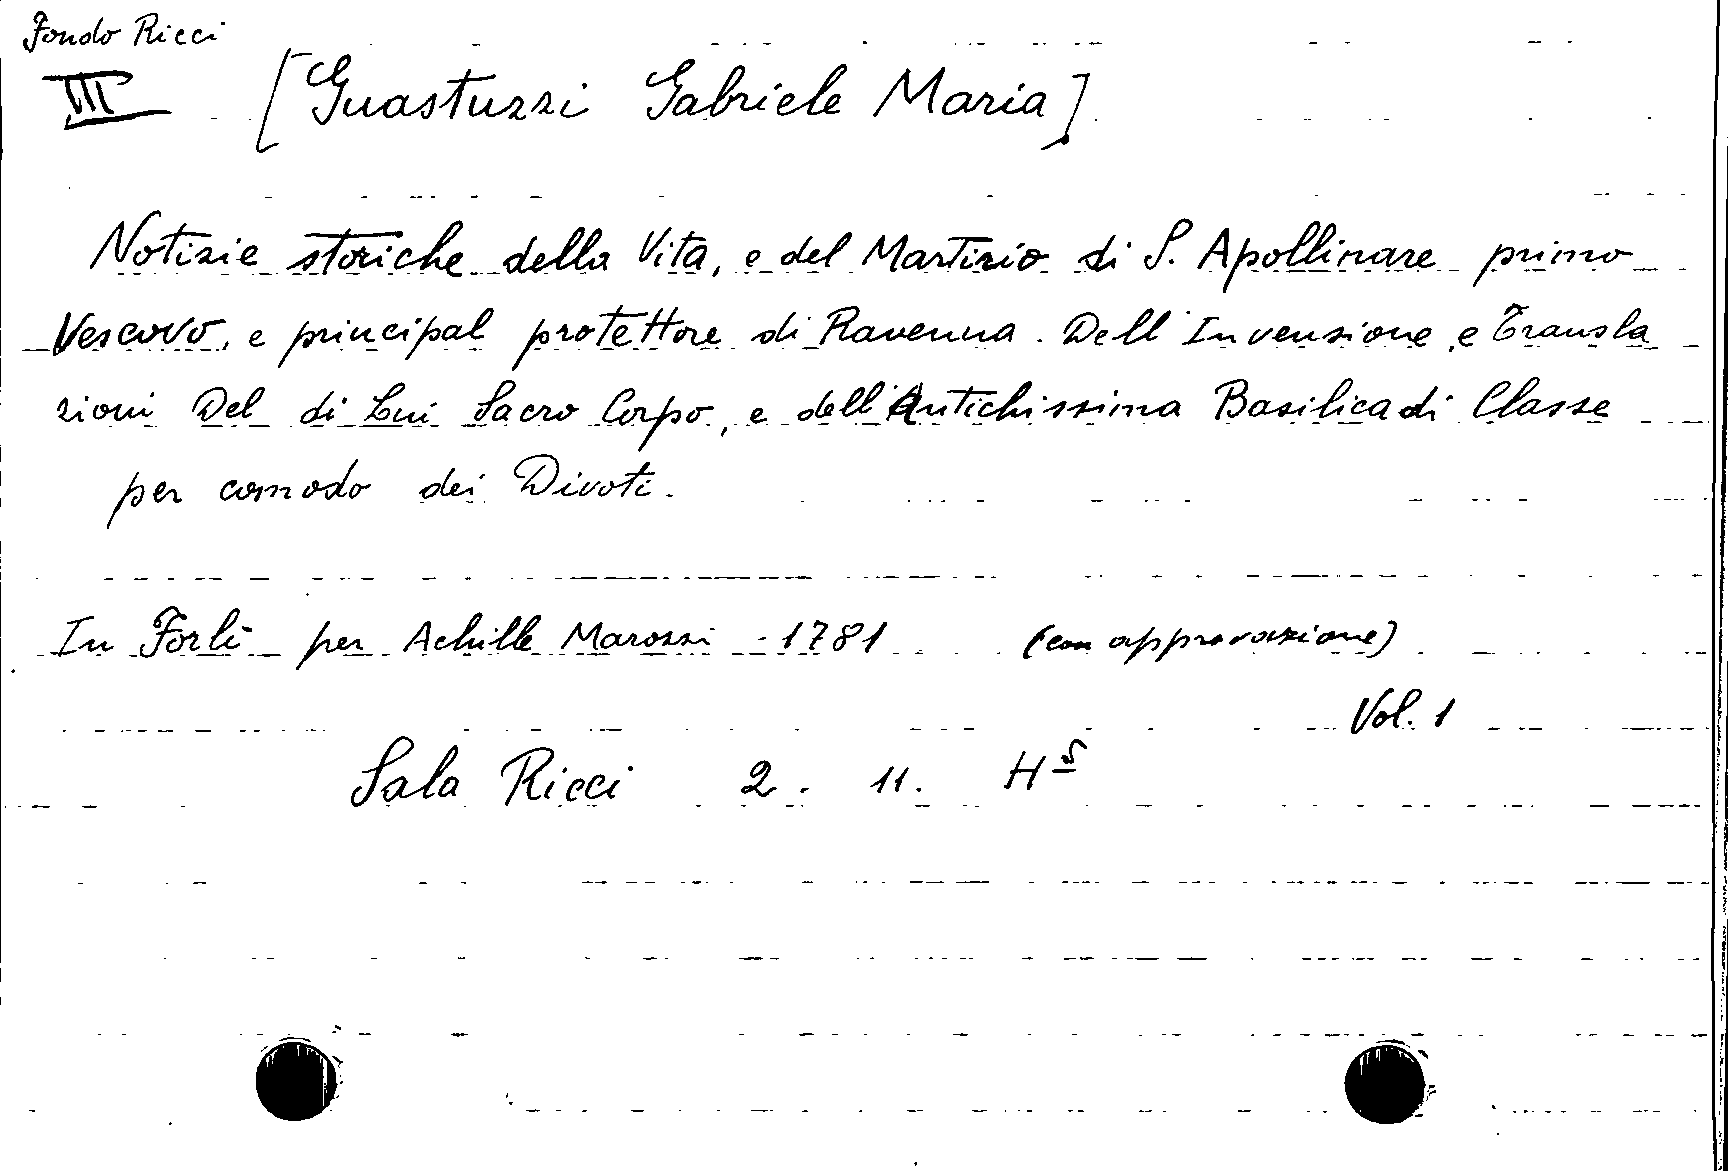 Fondo Ricci
III [Guastuzzi Gabriele Maria]
Notizie storiche della Vita, e del Martirio di S. Apollinare primo
Vescovo, e principal protettore di Ravenna. Dell'Invenzione, e Transla
zioni Del di Lui Sacro Corpo, e dell'Antichissima Basilica di Classe
per comodo dei Divoti.
In Forlì per Achille Marozzi - 1781 (con approvazione)
Vol. 1
Sala Ricci 2. 11. H 5